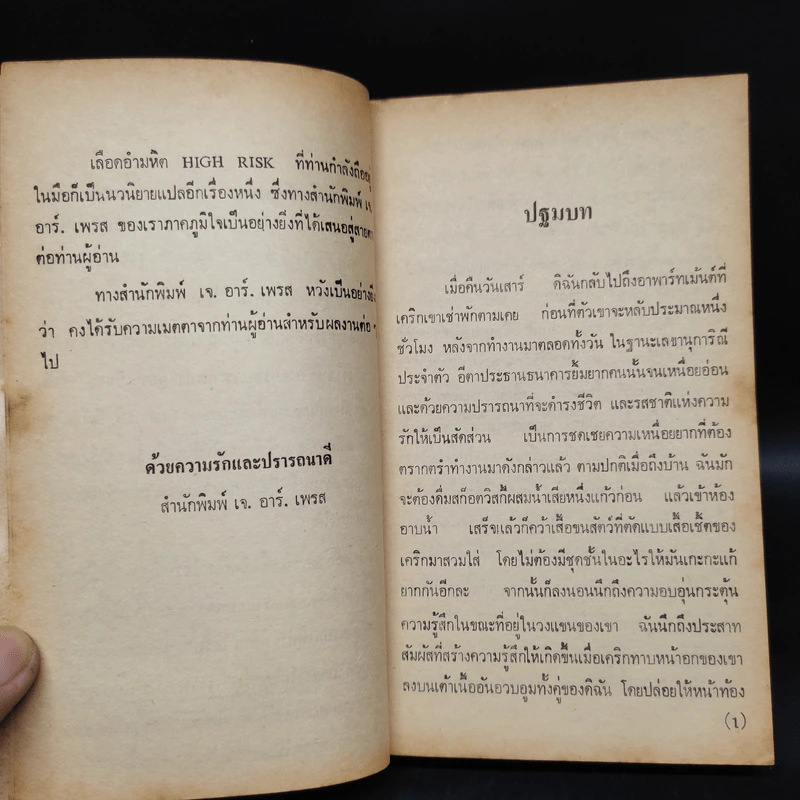 เลือดอำมหิต HIGH RISK ที่ท่านกำลังถืออยู่
ในมือก็เป็นนวนิยายแปลอีกเรื่องหนึ่ง ซึ่งทางสำนักพิมพ์ เจ.
อาร์. เพรส ของเราภาคภูมิใจเป็นอย่างยิ่งที่ได้เสนอสู่สายตา
ต่อท่านผู้อ่าน
ทางสำนักพิมพ์ เจ. อาร์. เพรส หวังเป็นอย่างยิ่ง
ว่า คงได้รับความเมตตาจากท่านผู้อ่านสำหรับผลงานต่อ ๆ
ไป
ด้วยความรักและปรารถนาดี
สำนักพิมพ์ เจ. อาร์. เพรส
ปฐมบท
เมื่อคืนวันเสาร์ ดิฉันกลับไปถึงอาพาร์ทเม้นต์ที่
เคริกเขาเช่าพักตามเคย ก่อนที่ตัวเขาจะหลับประมาณหนึ่ง
ชั่วโมง หลังจากทำงานมาตลอดทั้งวัน ในฐานะเลขานุการิณี
ประจำตัว อีตาประธานธนาคารยิ้มยากคนนั้นจนเหนื่อยอ่อน
และด้วยความปรารถนาที่จะดำรงชีวิต และรสชาติแห่งความ
รักให้เป็นสัดส่วน เป็นการชดเชยความเหนื่อยยากที่ต้อง
ตรากตรำทำงานมาดังกล่าวแล้ว ตามปกติเมื่อถึงบ้าน ฉันมัก
จะต้องดื่มสก็อตวิสกี้ผสมน้ำเสียหนึ่งแก้วก่อน แล้วเข้าห้อง
อาบน้ำ เสร็จแล้วก็คว้าเสื้อขนสัตว์ที่ตัดแบบเสื้อเชิ้ตของ
เคริกมาสวมใส่ โดยไม่ต้องมีชุดชั้นในอะไรให้มันเกะกะแก้
ยากกันอีกละ จากนั้นก็ลงนอนนึกถึงความอบอุ่นกระตุ้น
ความรู้สึกในขณะที่อยู่ในวงแขนของเขา ฉันนึกถึงประสาท
สัมผัสที่สร้างความรู้สึกให้เกิดขึ้นเมื่อเคริกทาบหน้าอกของเขา
ลงบนเต้าเนื้ออันอวบอูมทั้งคู่ของดิฉัน โดยปล่อยให้หน้าท้อง
(1)